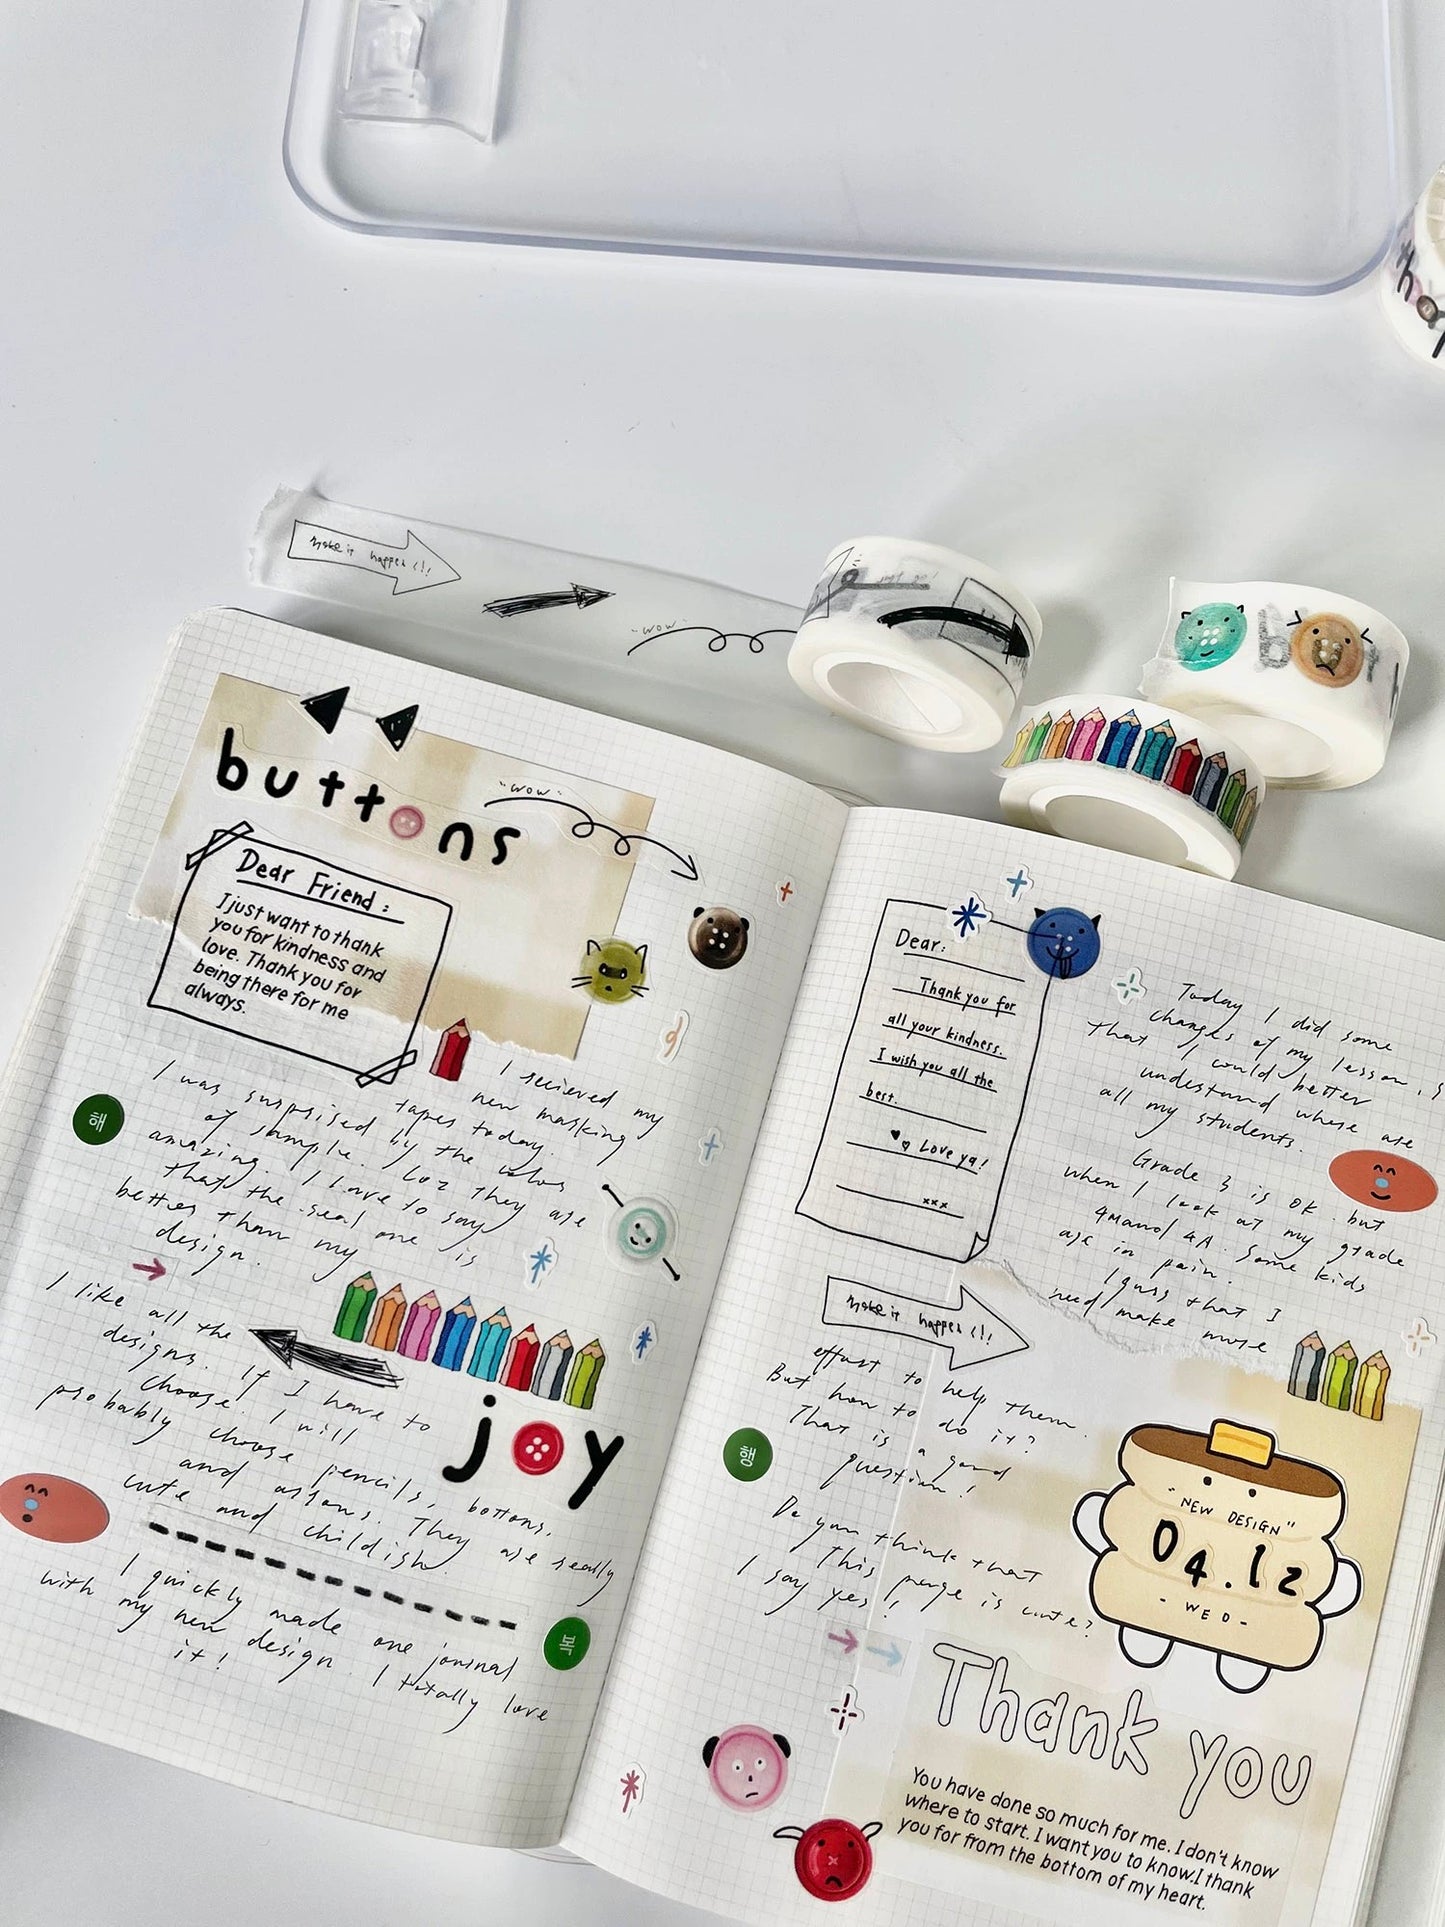 Make it happen (!!
"wow"
b
buttons
"wow"
Dear Friend :
I just want to thank
you for kindness and
love. Thank you for
being there for me
always.
I recieved my
new masking
tapes today.
I was surprised by the
of sample. Coz they are
amazing. I love to say
that the seal one is
better than my
design.
해
I like all the
designs. If I have to
choose. I will
probably choose pencils, bottons,
and arrows. They are really
cute and childish.
joy
I quickly made one journal
with my new design. I totally love
it!
복
Dear:
Thank you for
all your kindness.
I wish you all the
best.
Love ya!
xxx
Today I did some
changes of my lesson, s
that I could better
understand where are
all my students.
Grade 3 is OK. but
when I look at my grade
4M and 4A. Some kids
are in pain.
I guess that I
need make more
Make it happen (!!
effort to help them.
But how to do it?
That is a good
question!
행
Do you think that
This page is cute?
I say yes!!
"NEW DESIGN"
04.12
- WED -
Thank you
You have done so much for me. I don't know
where to start. I want you to know.I thank
you for from the bottom of my heart.